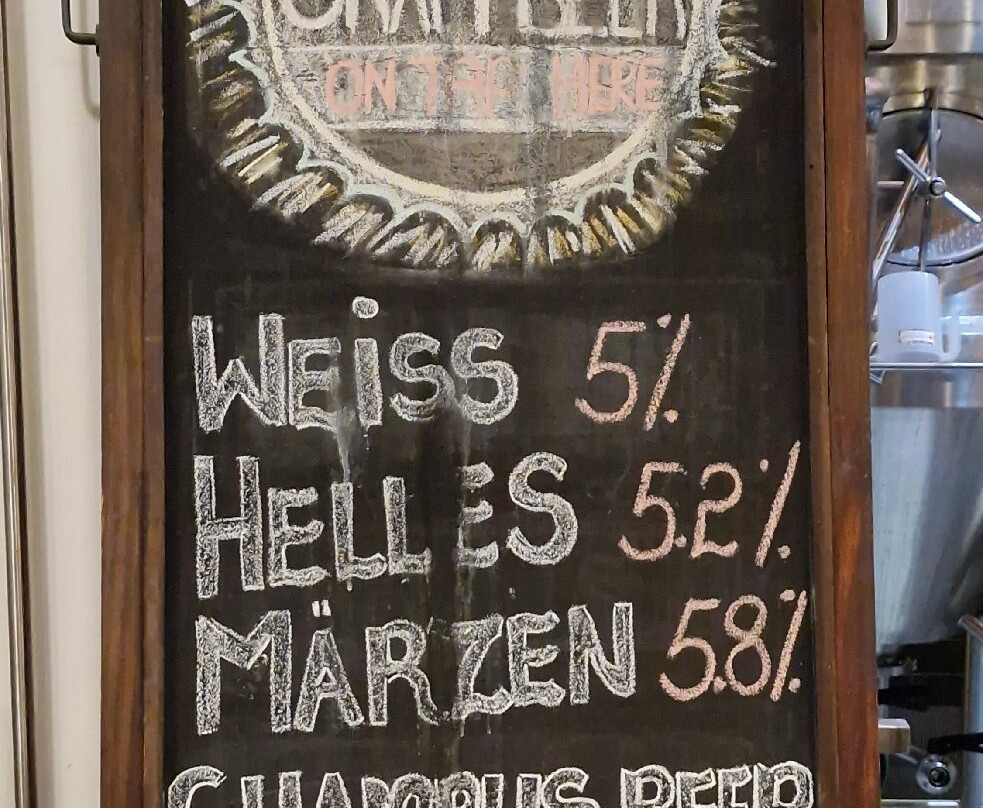 CRAFT BEER
ON TAP HERE
WEiSS 5%
HELLES 5.2%
MÄRZEN 5.8%
BEER